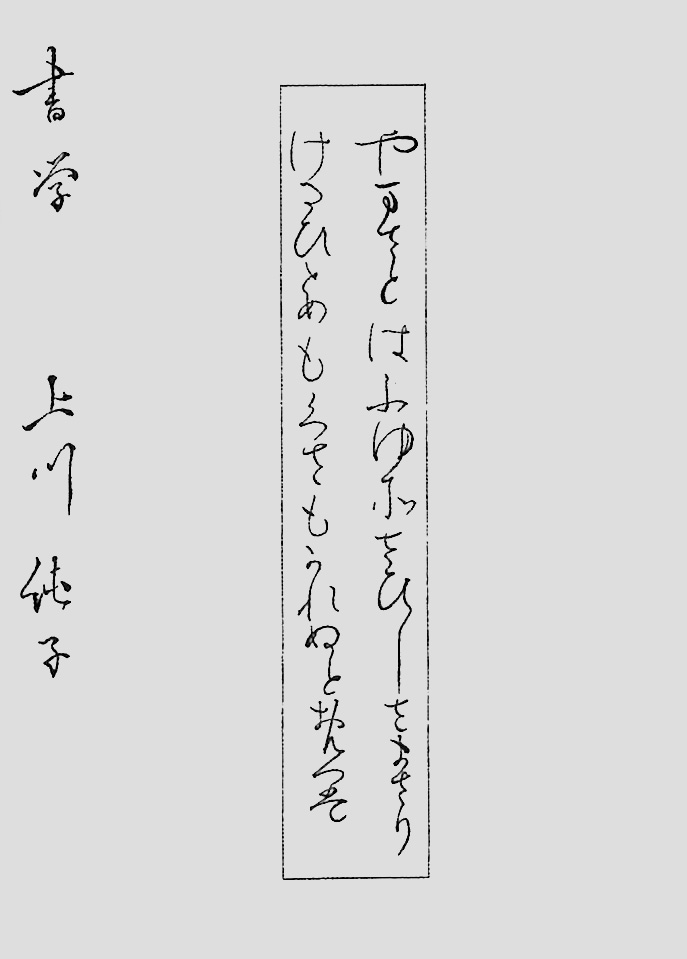 やまさとはふゆそさひしさまさり
けるひとめもくさもかれぬとおもへは
書学 上川純子